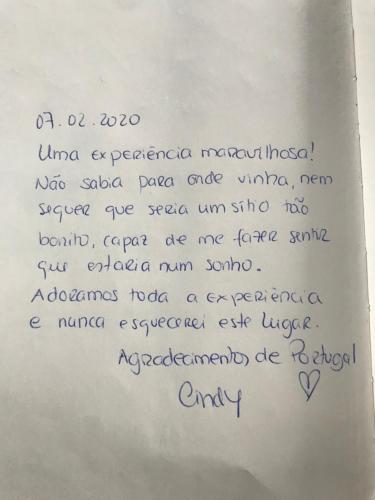 07.02.2020
Uma experiência maravilhosa!
Não sabia para onde vinha, nem
sequer que seria um sítio tão
bonito, capaz de me fazer sentir
que estaria num sonho.
Adoramos toda a experiência
e nunca esquecerei este lugar.
Agradecimentos de Portugal
Cindy ♡